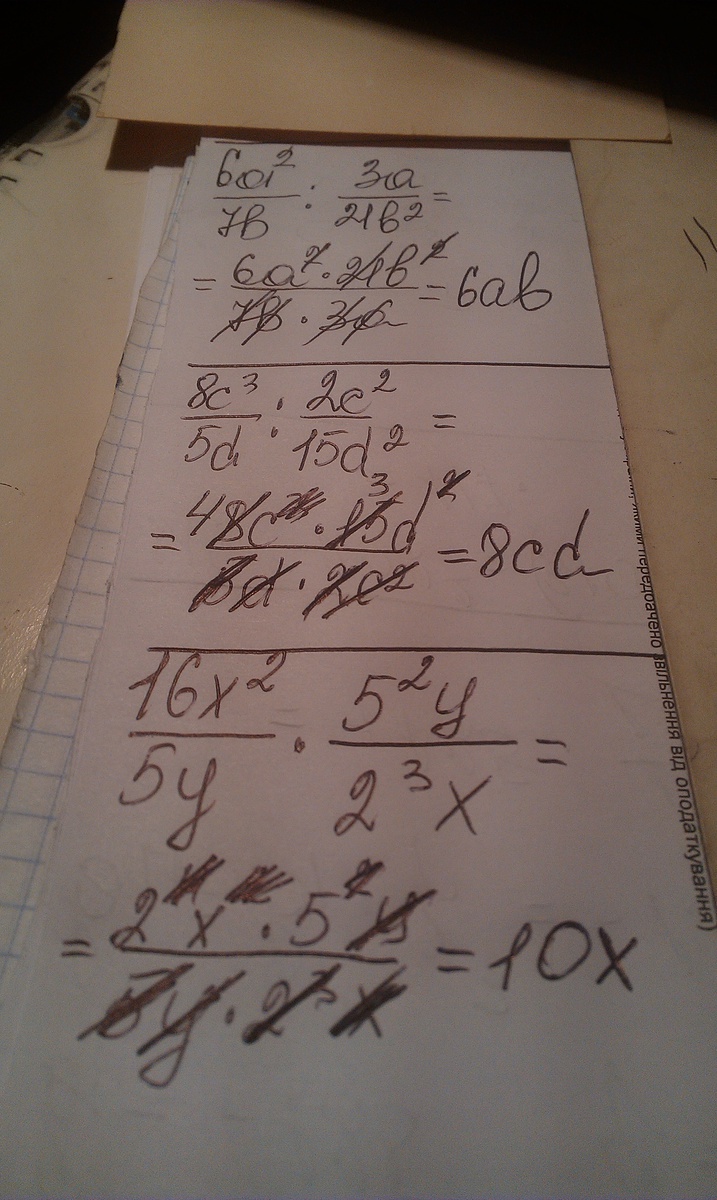 6a²/7b : 3a/21b² =
= 6a² · 21b²/7b · 3a = 6ab
8c³/5d : 2c²/15d² =
= 4 8c³ · 3 15d²/5d · 2c² = 8cd
16x²/5y · 5²y/2³x =
= 2⁴x² · 5²y/5y · 2³x = 10x
звільнення від оподаткування)